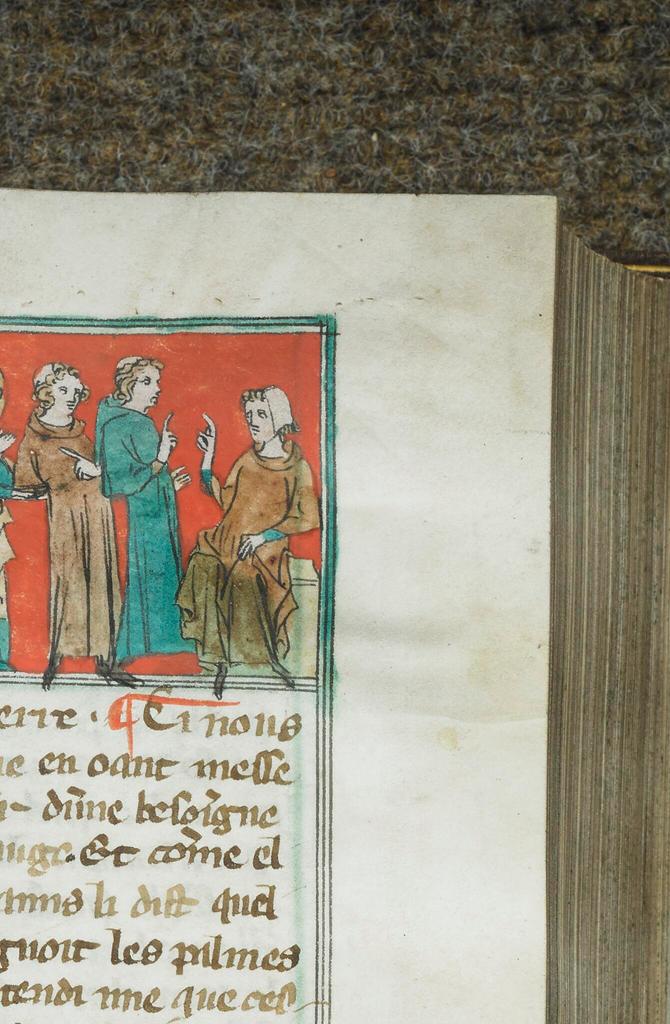 erre · ¶ Ci nous
ue en oant messe
dũne besoĩgne
auge. Et cõme el
anns li dist quel
gnoit les palmes
tendi une que cel